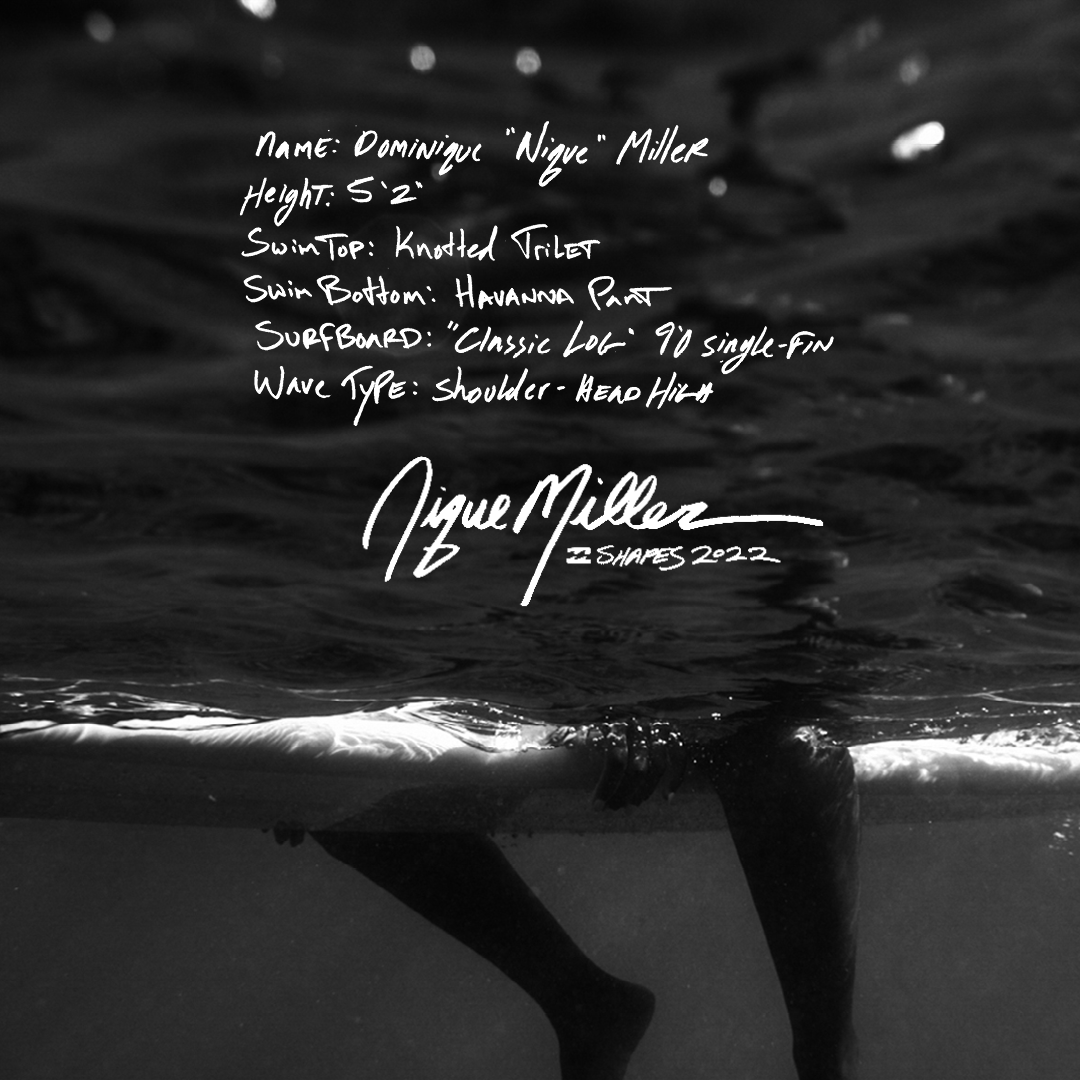 NAME: DOMINIQUE "Nique" MilleR
HeighT: 5'2"
SwimTop: Knotted TriLET
Swim Bottom: HAVANNA PANT
SURFBOARD: "Classic LOG" 9'0 single-FIN
Wave TyPE: shoulder-HEAD HIGH
Nique Miller
SHAPES 2022